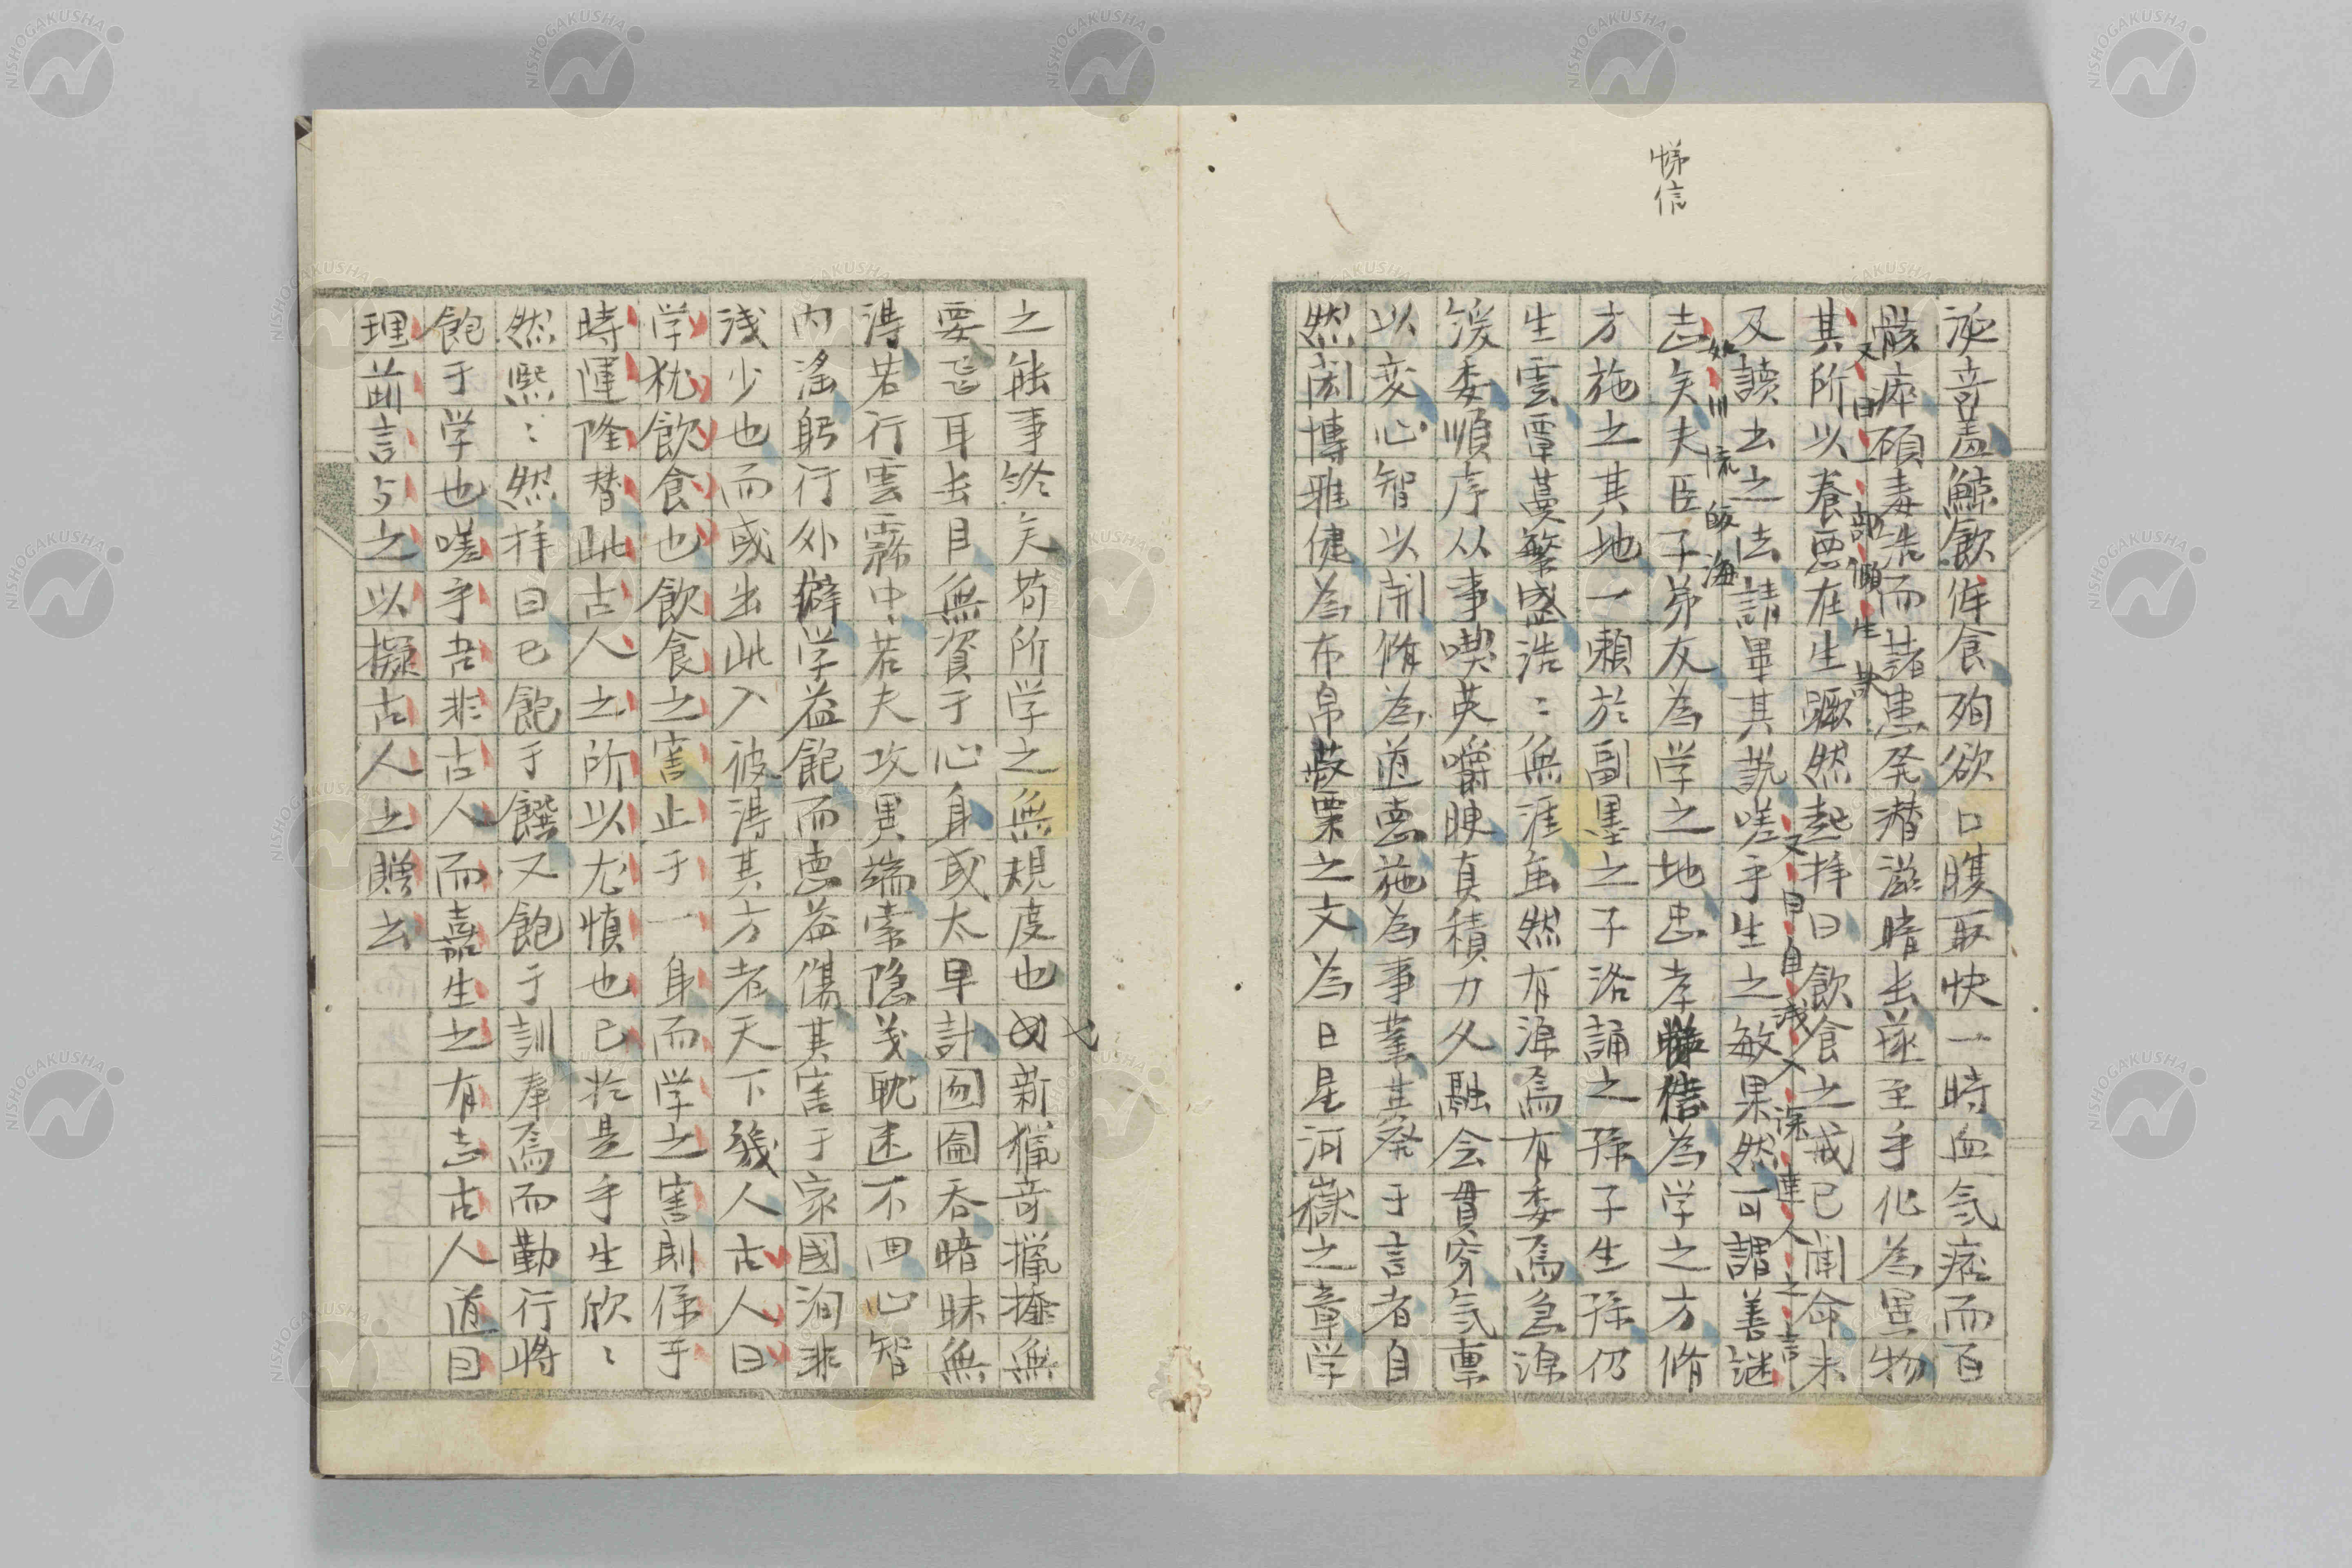 悌信
涎奇羞鯨飲侔食殉欲口腹取快一時血気痞而百
骸瘁碩毒浩而諸患発潜滋暗長遂至乎化為異物
又曰一部傾生訣
其所以養悪在生蹶然起拝曰飲食之戒已聞命未
又曰自浅入深連人之言
及読書之法請畢其説嗟乎生之敏果然可謂善謎
如川流皈海
志矣夫臣子弟友為学之地忠孝悌信為学之方脩
方施之其地一頼於副墨之子洛誦之孫子生孫仍
生雲覃蔓繁盛浩〻無涯虽然有源焉有委焉急源
緩委順序从事喫英嚼腴真積力久融会貫穿気稟
以変心智以開脩為道悳施為事業其発于言者自
然閎博雅健為布帛菽粟之文為日星河嶽之章学
之能事終矣苟所学之無規度也
也
新猟奇猟捶無
要乎耳長目無資于心身或太早計囫圇呑暗昧無
得若行雲霧中若夫攻異端索隠茂耽迷不回心智
内滛躬行外癖学益飽而悳益傷其害于家國洵非
浅少也而或出此入彼得其方者天下幾人古人曰
学犹飲食也飲食之害止于一身而学之害則係乎
時運隆替此古人之所以尤慎也已於是乎生欣〻
然熙〻然拝曰已飽于饌又飽于訓奉焉而勤行将
飽于学也嗟乎吾非古人而嘉生之有志古人道曰
理前言与之以擬古人之贈云